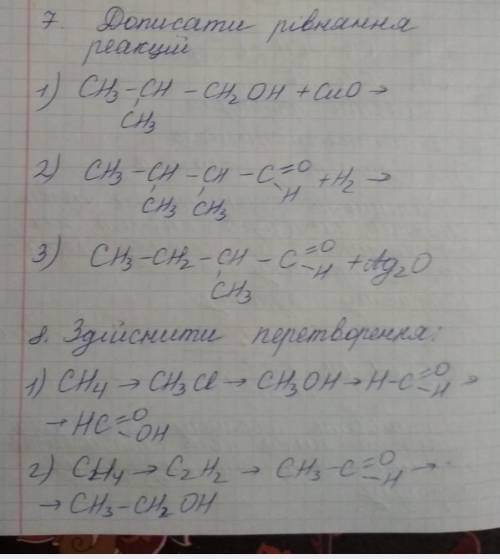 7. Дописати рівняння
реакцій
1) CH3-CH-CH2OH+CuO→
CH3
2) CH3-CH-CH-C=O-H+H2→
CH3 CH3
3) CH3-CH2-CH-C=O-H+Ag2O
CH3
8. Здійснити перетворення:
1) CH4→CH3Cl→CH3OH→H-C=O-H→
→HC=O-OH
2) C2H4→C2H2→CH3-C=O-H→
→CH3-CH2OH